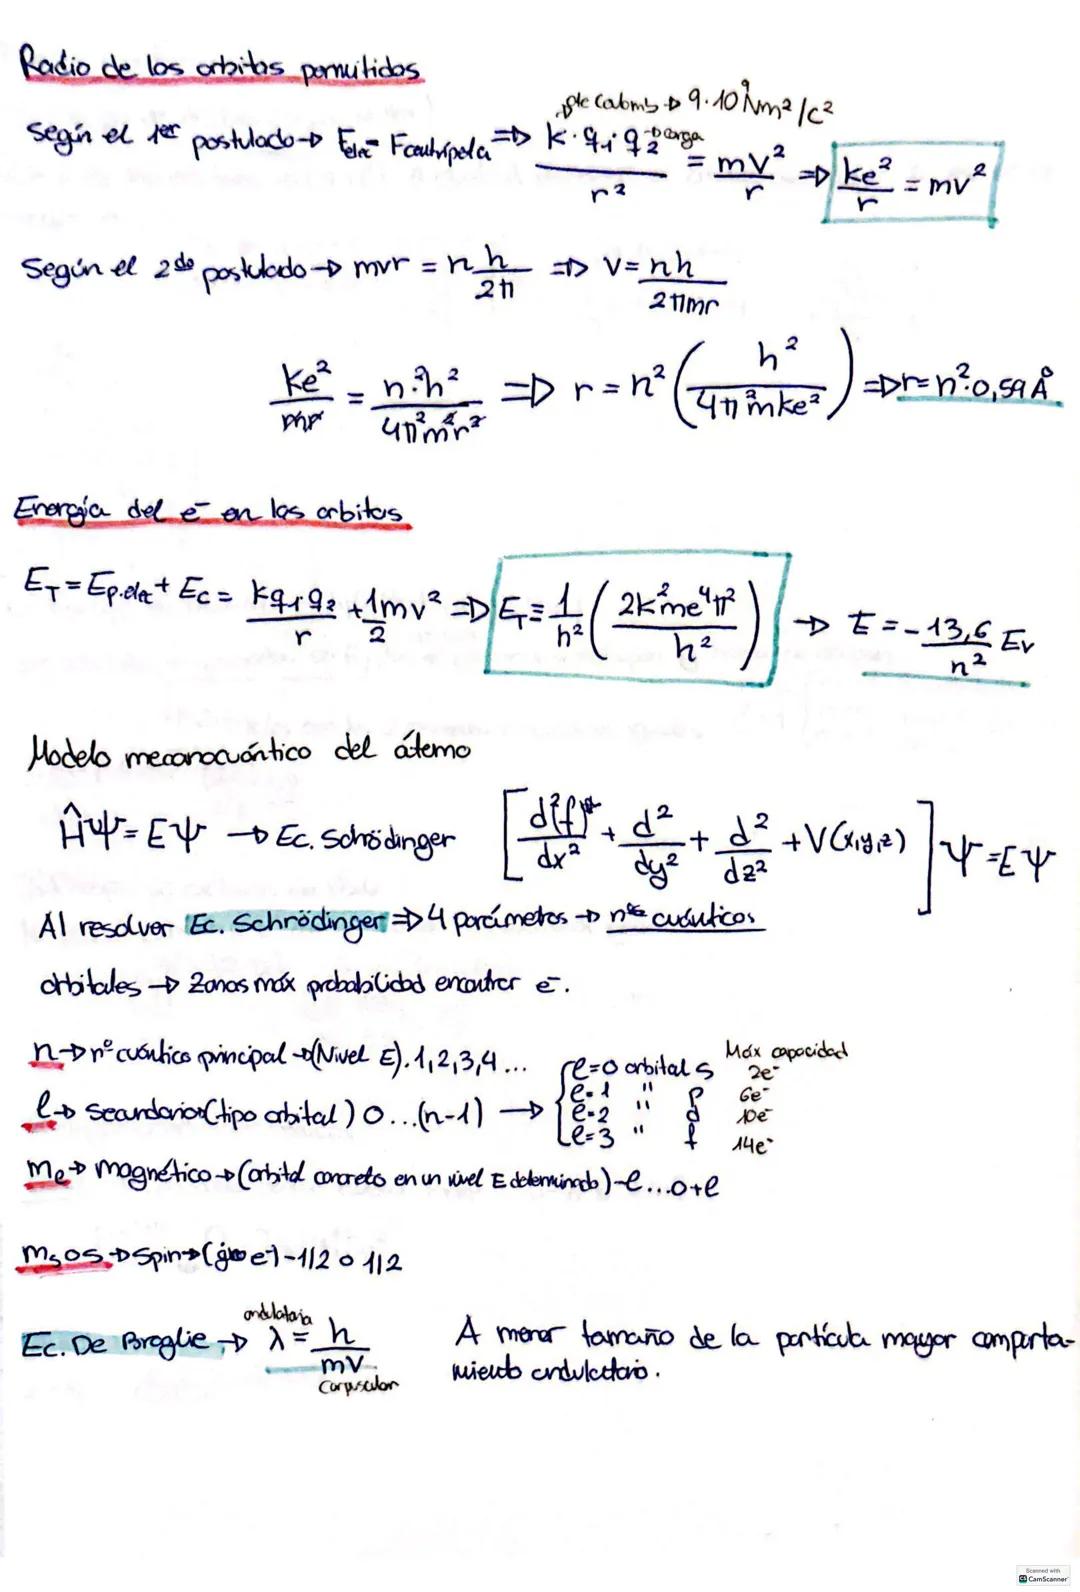 Radio de las orbitas permitidas
cte Coulomb → 9·10⁹ Nm²/c²
Según el 1er postulado → Felec = Fcentrípeta => k·q₁·q₂ → carga / r² = mv²/r => ke²/r = mv²
Según el 2do postulado → mvr = n h/2π => v = nh/2πmr
ke²/mr = n²·h²/4π²m²r² => r = n² (h²/4π²mke²) => r = n²·0,59 Å
Energía del e⁻ en las orbitas
E_T = Ep.elec + Ec = kq₁·q₂/r + 1/2 mv² => E_T = 1/h² (2k²me⁴π²/h²) → E = -13,6/n² Ev
Modelo mecanocuántico del átomo
ĤΨ = EΨ → Ec. Schrödinger [d²(f)/dx² + d²/dy² + d²/dz² + V(x,y,z)] Ψ = EΨ
Al resolver Ec. Schrödinger => 4 parámetros → nos cuánticos
orbitales → Zonas máx probabilidad encontrar e⁻.
n → nº cuántico principal → (Nivel E). 1,2,3,4...
l → Secundario (tipo orbital) 0...(n-1) →
Máx capacidad
l=0 orbital s 2e⁻
l=1 " p 6e⁻
l=2 " d 10e⁻
l=3 " f 14e⁻
me → magnético → (orbital concreto en un nivel E determinado) -l...0+l
ms o s → Spin → (giro e⁻) -1/2 o 1/2
Ec. De Broglie → λ = h/mv
ondulatoria
corpuscular
A menor tamaño de la partícula mayor comporta-
miento ondulatorio.
Scanned with
CS CamScanner